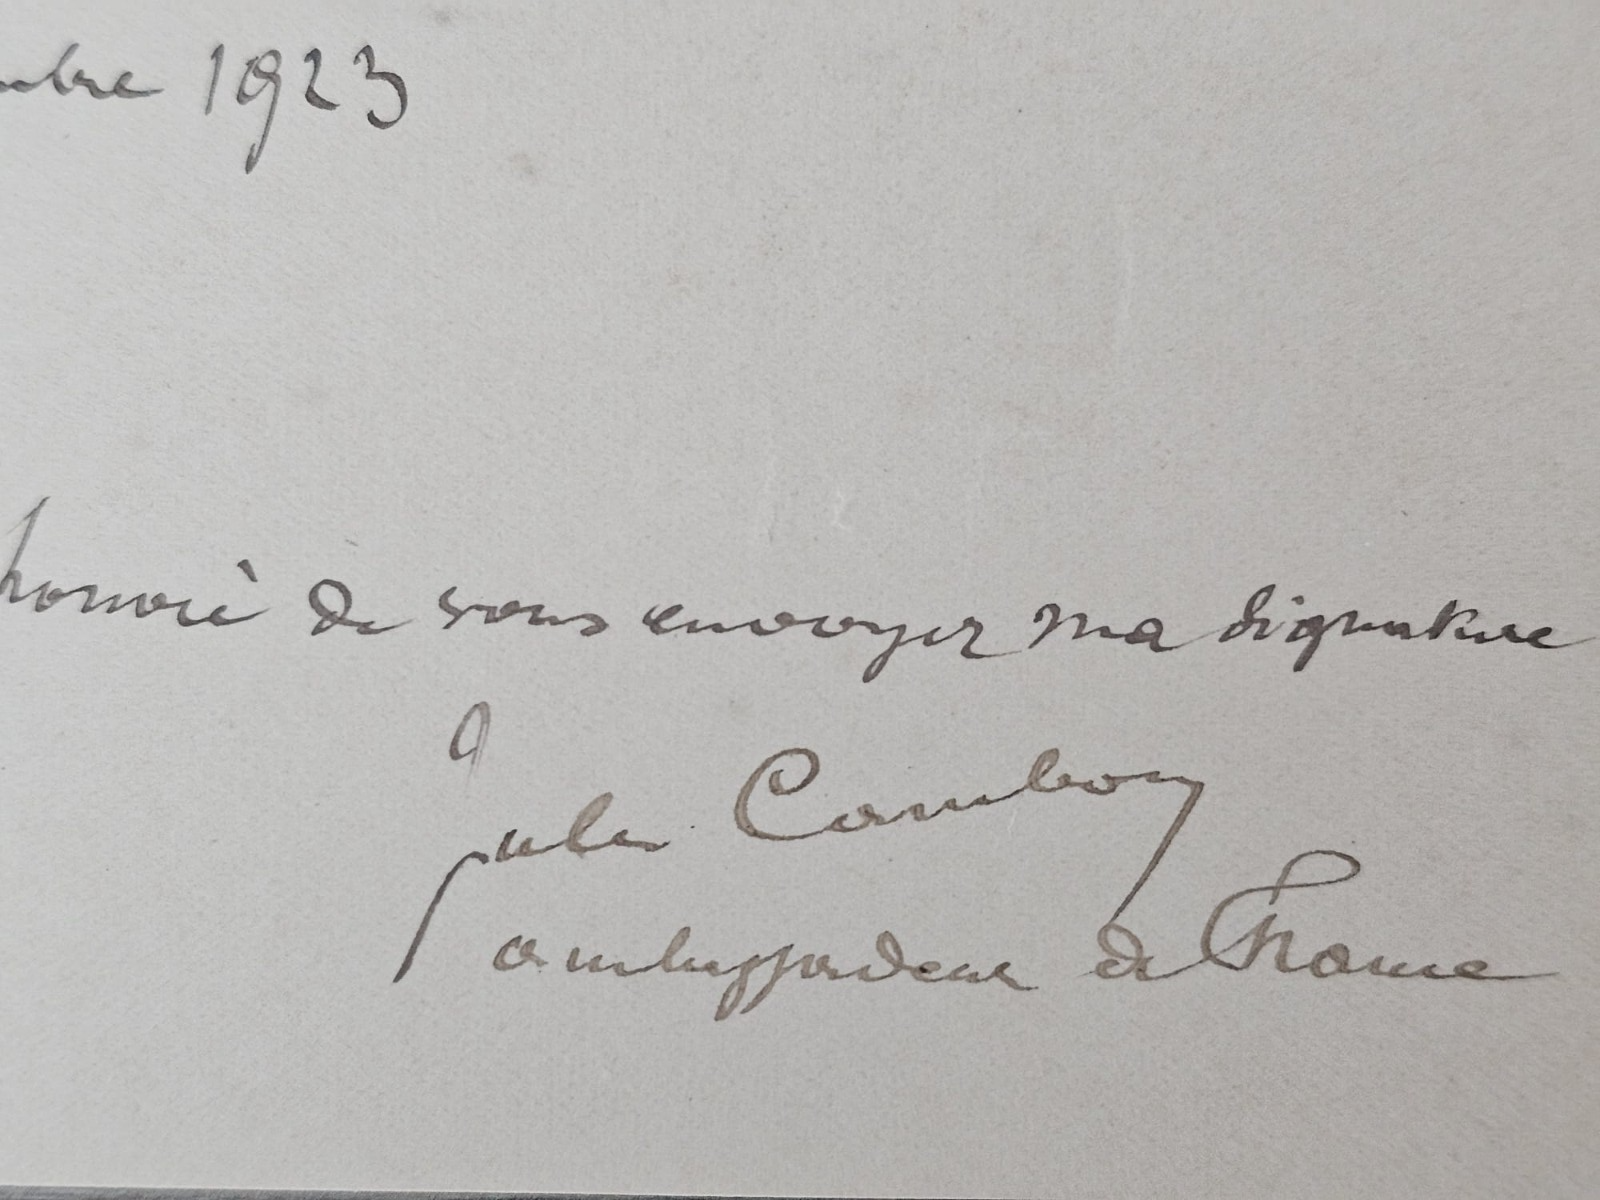 mbre 1923
honoré de vous envoyer ma signature
Jules Cambon
ambassadeur de France